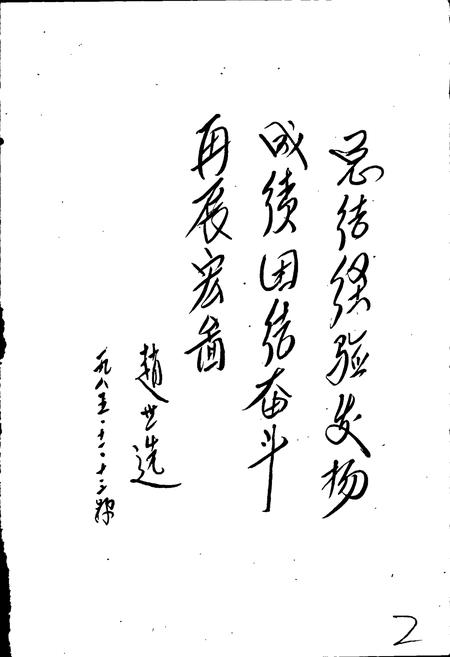 总结经验发扬
成绩团结奋斗
再展宏图
赵世选
一九八五·十一·十二号
2